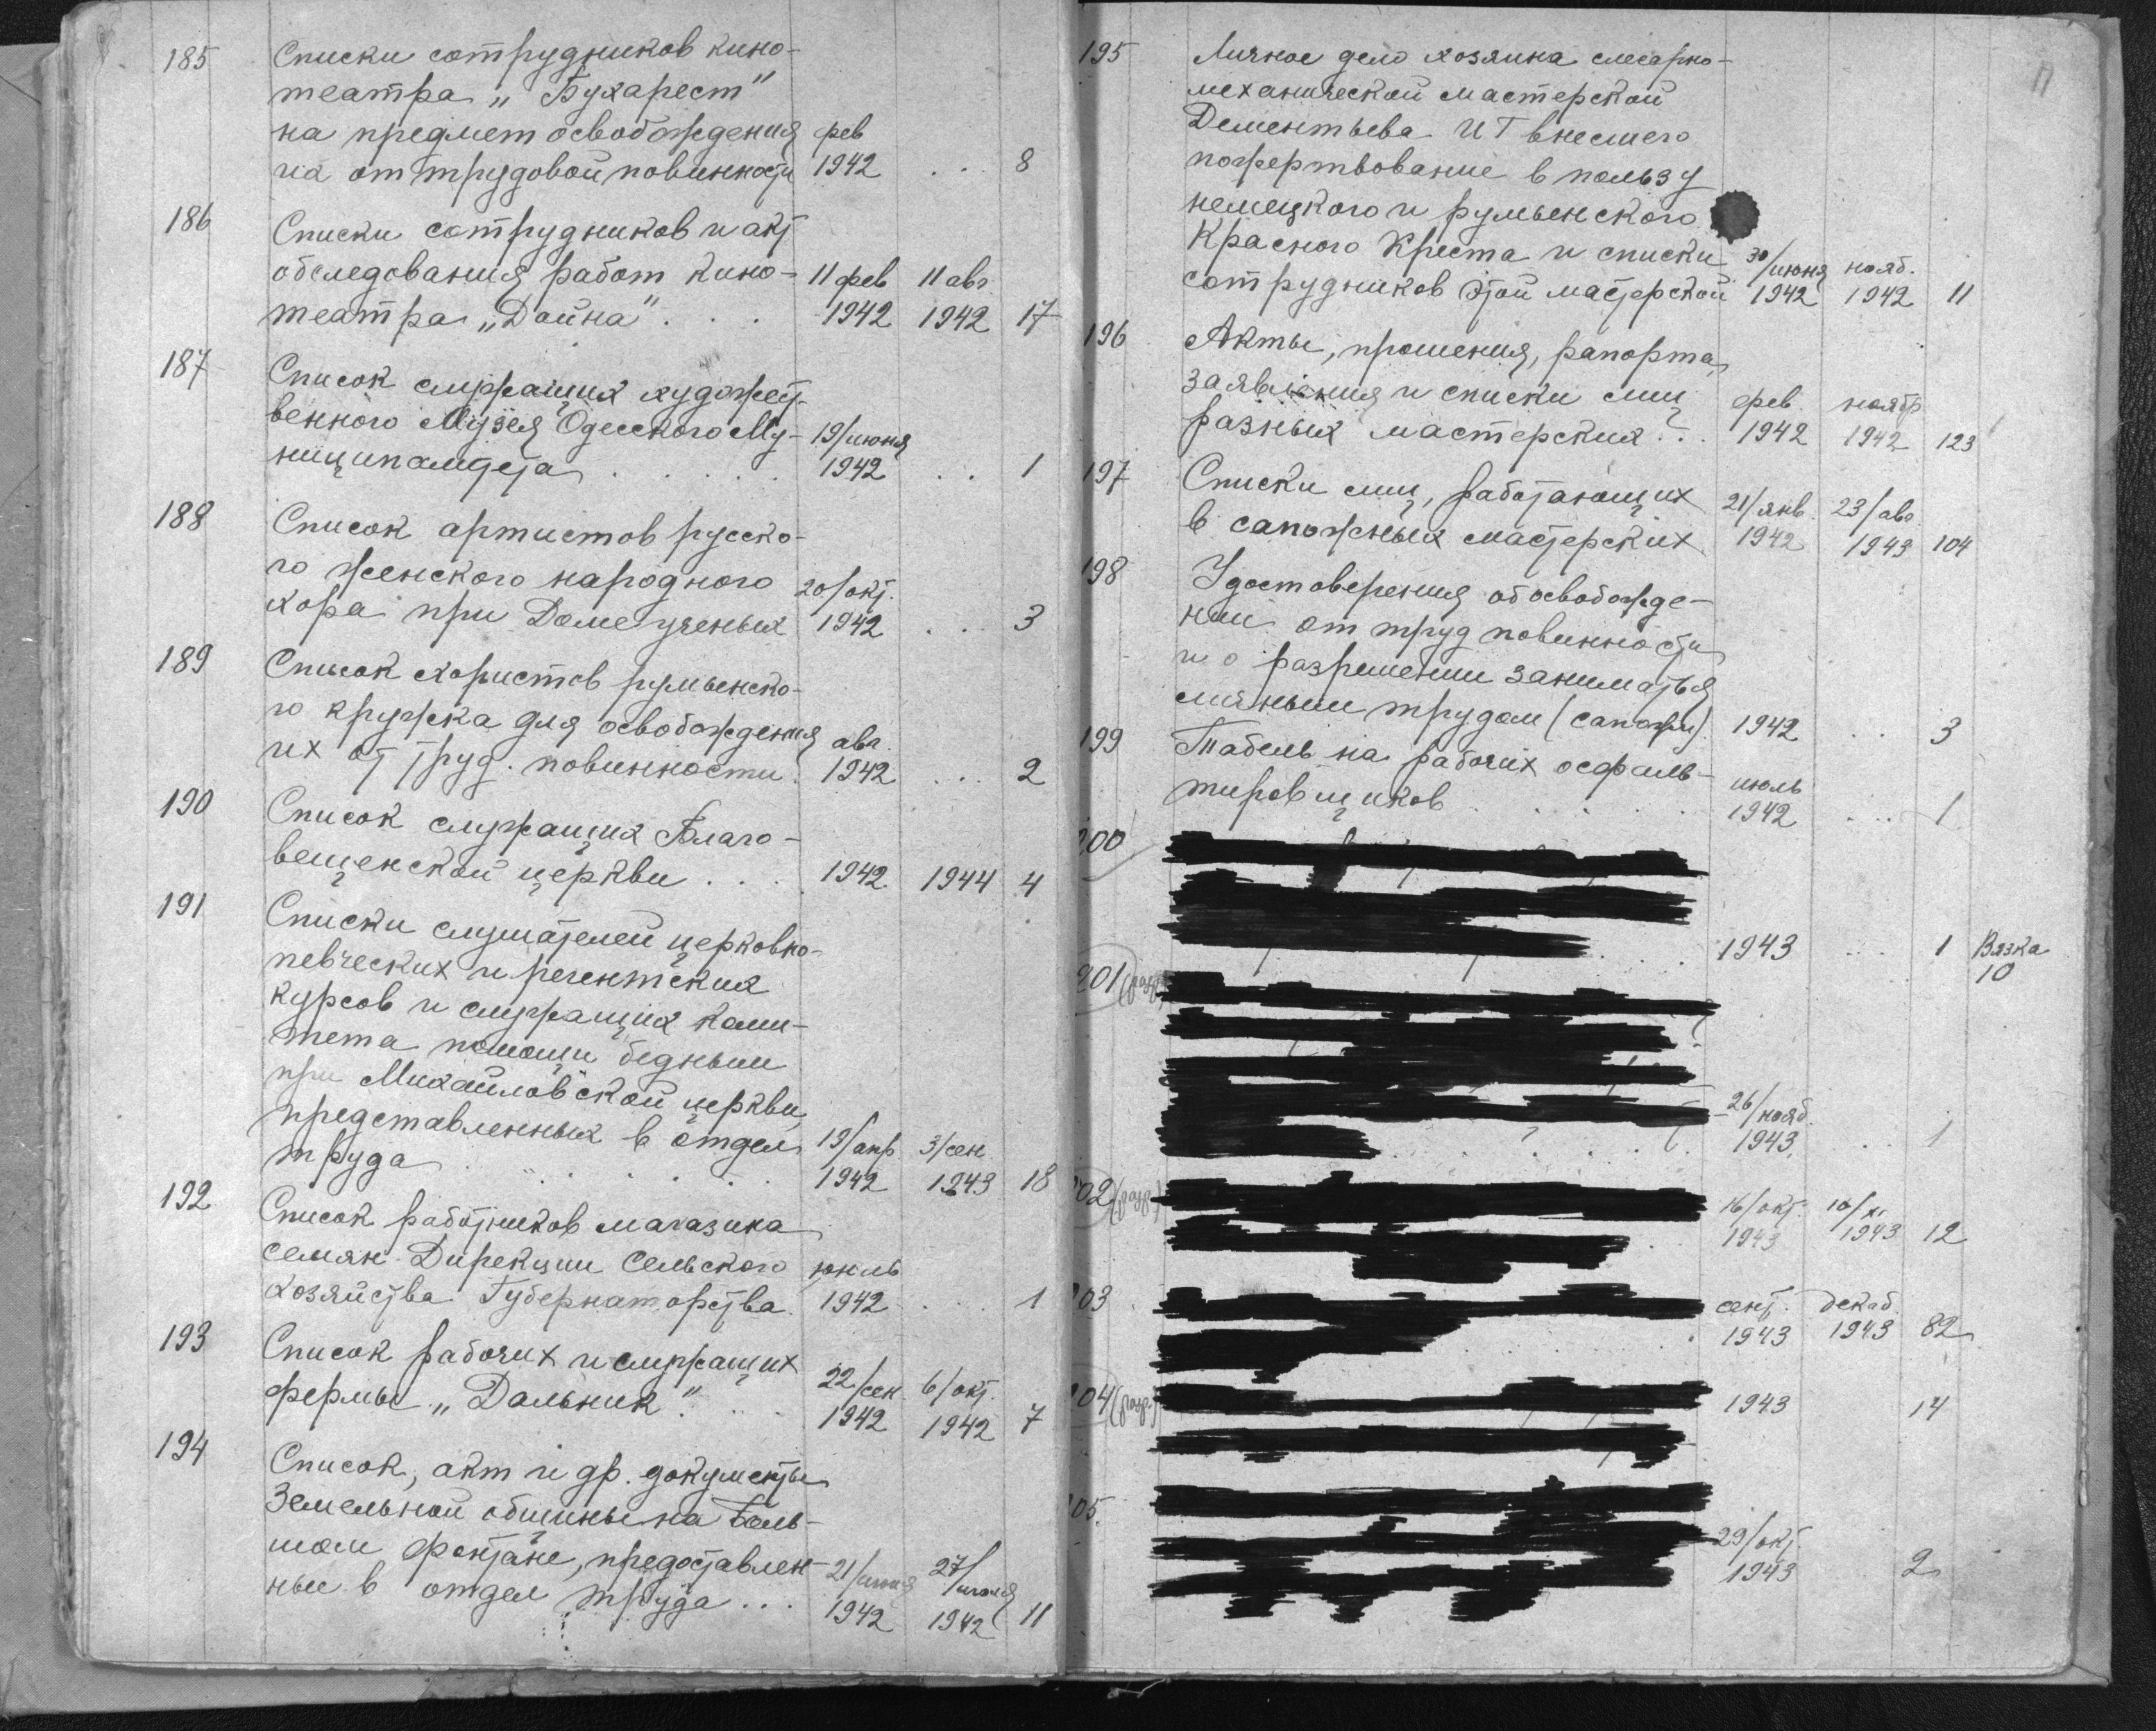 185 Списки сотрудников кино-
театра „Бухарест"
на предмет освобождения фев
их от трудовой повинности 1942 . . . 8
186 Списки сотрудников и акт
обследования работ кино- 11 фев 11 авг
театра „Дойна" . . . 1942 1942 17
187 Список служащих художест-
венного Музея Одесского Му- 19/июня
ниципалитета . . . . . 1942 . . 1
188 Список артистов русско-
го женского народного 20/окт.
хора при Доме ученых 1942 . . . 3
189 Список хористов румынско-
го кружка для освобождения авг.
их от труд. повинности. 1942 . . . 2
190 Список служащих Благо-
вещенской церкви . . . . 1942 1944 4
191 Списки слушателей церковно-
певческих и регентских
курсов и служащих коми-
тета помощи бедным
при Михайловской церкви,
представленных в отдел 19/апр. 3/сен.
труда . . . . . . 1942 1943 18
192 Список работников магазина
семян Дирекции Сельского июль
хозяйства Губернаторства. 1942 . . . 1
193 Список рабочих и служащих
фермы „Дальник" . . . 22/сен. 6/окт.
1942 1942 7
194 Список, акт и др. документы
Земельной общины на Боль-
шом фонтане, предоставлен- 21/июня 27/июля
ные в отдел труда . . . 1942 1942 11
11
195 Личное дело хозяина слесарно-
механической мастерской
Дементьева И Т внесшего
пожертвование в пользу
немецкого и румынского
Красного Креста и списки 30/июня нояб.
сотрудников этой мастерской 1942 1942 11
196 Акты, прошения, рапорта,
заявления и списки лиц фев. ноябр
разных мастерских . . . 1942 1942 123
197 Списки лиц, работающих 21/янв. 23/авг
в сапожных мастерских 1942 1943 104
198 Удостоверения об освобожде-
нии от труд повинности
и о разрешении заниматься
личным трудом (сапожн). 1942 . . . 3
199 Табель на рабочих осфаль- июль
тировщиков . . . . . . 1942 . . . 1
200
1943 . . . 1 Вязка
10
201
26/нояб.
1943. . . . 1
02 16/окт. 10/XI
1943 1943 12
03 сент. декаб.
1943 1943 82
04 1943 14
05. 29/окт
1943 2